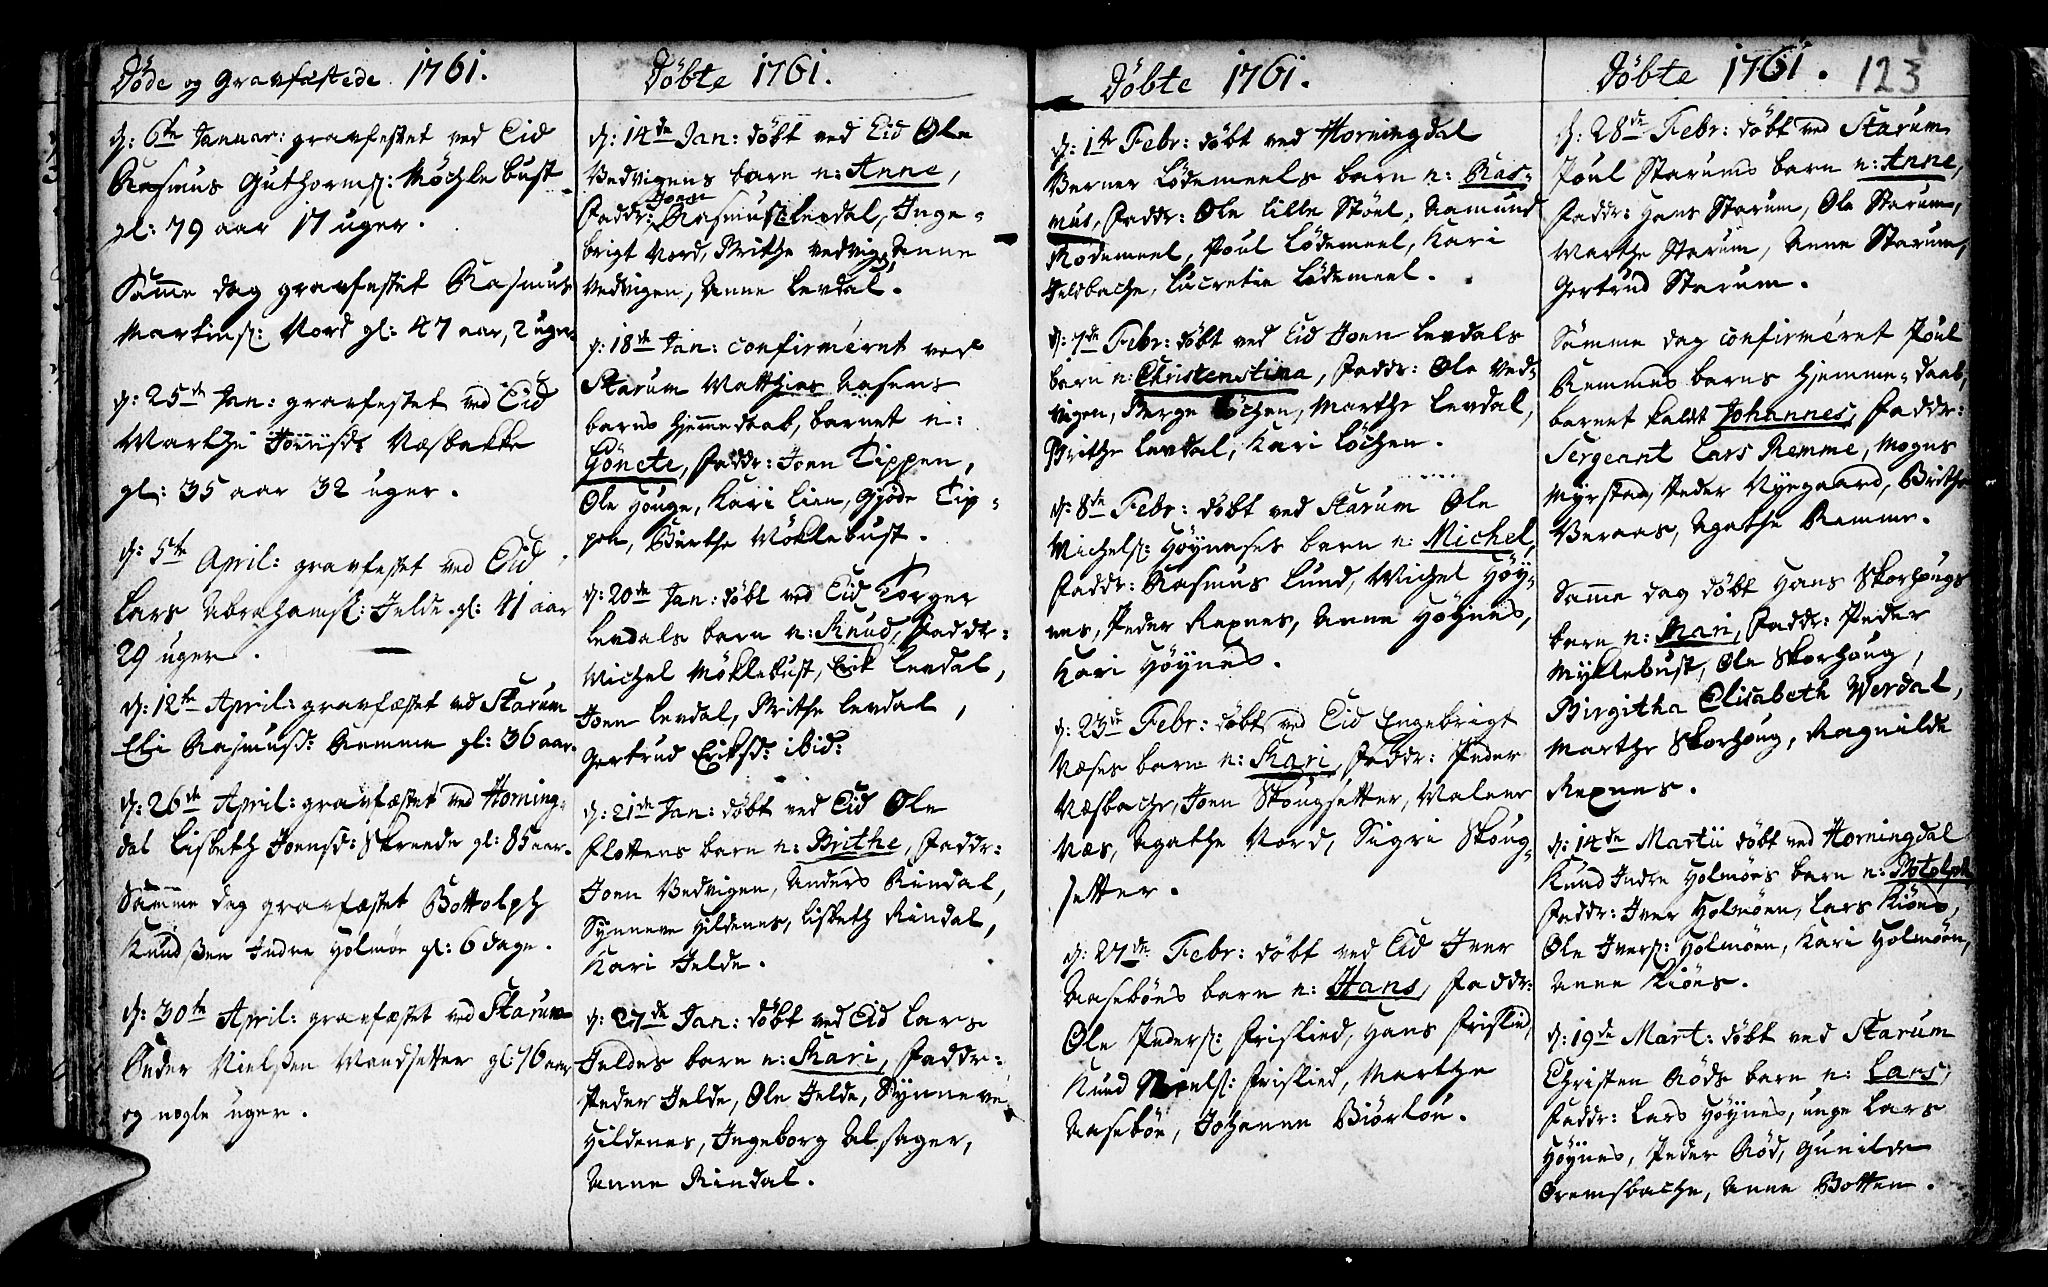 Døde og Gravfæstede 1761.
d: 6te Januar: gravfestet ved Eid
Rasmus Guthorms: Møchlebust
gl: 79 aar 17 uger.
Samme dag gravfestet Rasmus
Martins: Nord gl: 47 aar, 2 uger
d: 25de Jan: gravfestet ved Eid
Marthe Næsbakke
gl: 35 aar 32 uger.
d: 5te April: gravfestet ved Eid
Lars Abrahams: Jelde. gl: 41 aar
29 uger.
d: 12te April: gravfæstet ved Starum
Eli Rasmusd: Remme gl: 36 aar.
d: 26de April: gravfæstet ved Horning-
dal Lisbeth Joensd: Skreede gl: 85 aar.
Samme dag gravfæstet Bottolph
Knudsen Indre Holmøe gl: 6 dage.
d: 30te April: gravfæstet ved Starum
Peder Nielsen Mandsetter gl: 76 aar
og nogle uger.
Døbte 1761.
d: 14de Jan: døbt ved Eid Ole
Vedvigens barn n: Anne,
Faddr: Joen Rasmus: Levdal, Inge-
brigt Nord, Brithe Vedvig, Anne
Vedvigen, Anne Levdal.
d: 18de Jan: confirméret ved
Starum Matthias Aasens
barns hjemmedaab, barnet n:
Gönete, Faddr: Joen Tippen,
Ole Houge, Kari Lien, Gjøde Tip-
pen, Birthe Møklebust.
d: 20de Jan: døbt ved Eid Torger
Levdals barn n: Knud, Faddr:
Michel Møklebust, Erik Levdal,
Joen Levdal, Brithe Levdal,
Gertrud Eriksd: ibid:
d: 21de Jan: døbt ved Eid Ole
Flottens barn n: Brithe, Faddr:
Joen Vedvigen, Anders Rindal,
Synneve Hildenes, Lisbeth Rindal,
Kari Jelde.
d: 27de Jan: døbt ved Eid Lars
Jeldes barn n: Kari, Faddr:
Peder Jelde, Ole Jelde, Synneve
Hildenes, Ingeborg Alsager,
Anne Rindal.
Døbte 1761.
d: 1te Febr: døbt ved Horningdal
Berner Lødemeels barn n: Ras-
mus, Faddr: Ole Lille Støel, Aamund
Rodemeel, Poul Lødemeel, Kari
Jeldbache, Lucretia Lødemeel.
d: 7de Febr: døbt ved Eid Joen Levdals
barn n: Christenstina, Faddr: Ole Ved-
vigen, Berge Løchen, Marthe Levdal,
Brithe Levdal, Kari Løchen.
d: 8de Febr: døbt ved Starum Ole
Michels: Høyneses barn n: Michel,
Faddr: Rasmus Lund, Michel Høy-
nes, Peder Rexnes, Anne Höynes,
Kari Höynes.
d: 23de Febr: døbt ved Eid Engebrigt
Næses barn n: Kari, Faddr: Peder
Næsbache, Joen Skougsetter, Malene
Næs, Agathe Nord, Sigri Skoug-
setter.
d: 27de Febr: døbt ved Eid Iver
Aasebøes barn n: Hans, Faddr:
Ole Peders: Frislied, Hans Frislied,
Knud Niels: Frislied, Marthe
Aasebøe, Johanne Biørløe.
Døbte 1761. 123
d: 28de Febr: døbt ved Starum
Poul Starums barn n: Anne,
Faddr: Hans Starum, Ole Starum,
Marthe Starum, Anne Starum,
Gertrud Starum.
Samme dag confirmeret Poul
Remmes barns hjemme-daab,
barnet kaldt Johannes, Faddr:
Sergeant Lars Remme, Mogns
Myrstad, Peder Nyegaard, Brithe
Veraas, Agathe Remme.
Samme dag døbt Hans Skorhougs
barn n: Mari, Faddr: Peder
Myklebust, Ole Skorhoug,
Birgitha Elisabeth Werdal,
Marthe Skorhoug, Ragnilde
Rexnes.
d: 14de Martii døbt ved Horningdal
Knud Indre Holmøes barn n: Botolph
Faddr: Iver Holmøen, Lars Kiøes,
Ole Ivers: Holmøen, Kari Holmøen,
Anne Kiøes.
d: 19de Mart: døbt ved Starum
Christen Røds barn n: Lars,
Faddr: Lars Höynes, unge Lars
Höynes, Peder Rød, Gunilde
Oremsbache, Anne Botten.